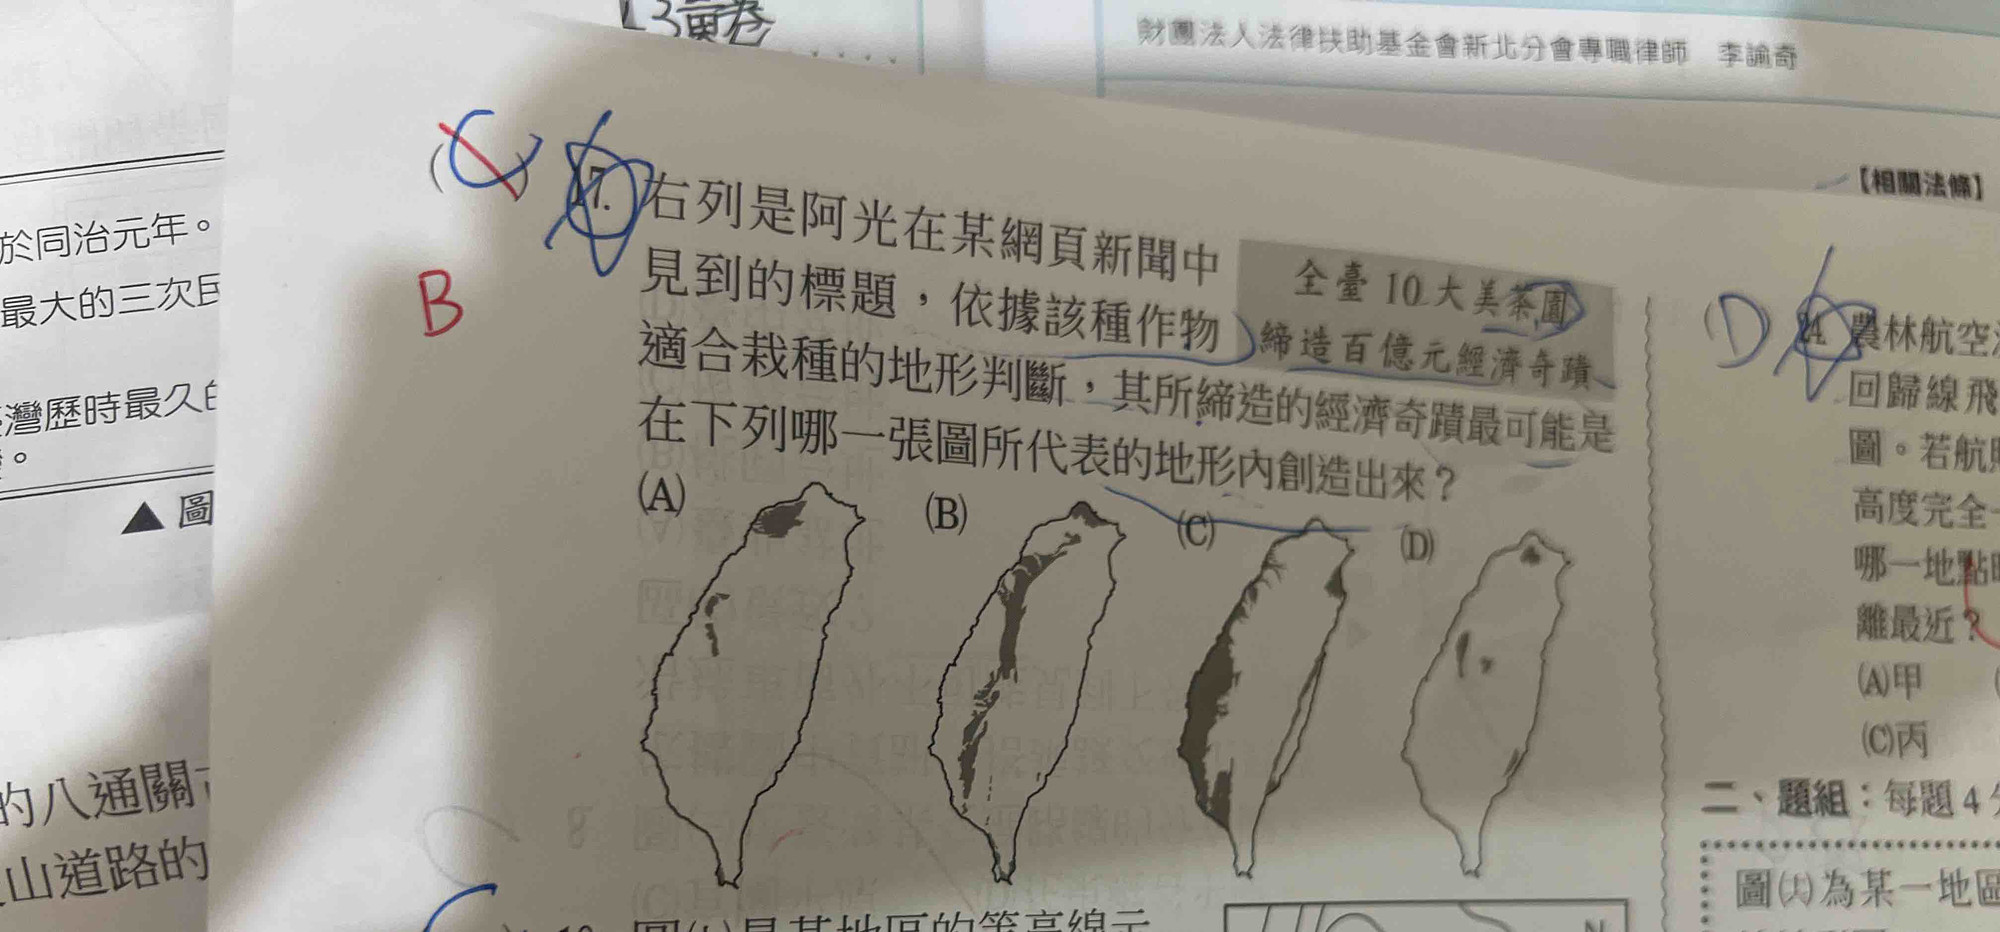 財團法人法律扶助基金會新北分會專職律師 李諭奇
【相關法條】
於同治元年。
最大的三次民
臺灣歷時最久的
。
▲圖
的八通關古
山道路的
(C) 17. 右列是阿光在某網頁新聞中
見到的標題，依據該種作物
適合栽種的地形判斷，其所締造的經濟奇蹟最可能是
在下列哪一張圖所代表的地形內創造出來？
B
全臺10大美茶園
締造百億元經濟奇蹟
(A) (B) (C) (D)
圖(七)是某地區的等高線示
N
D 24. 農林航空
回歸線飛
圖。若航照
高度完全
哪一地點
離最近？
(A)甲
(C)丙
二、題組：每題4分
圖(六)為某一地區